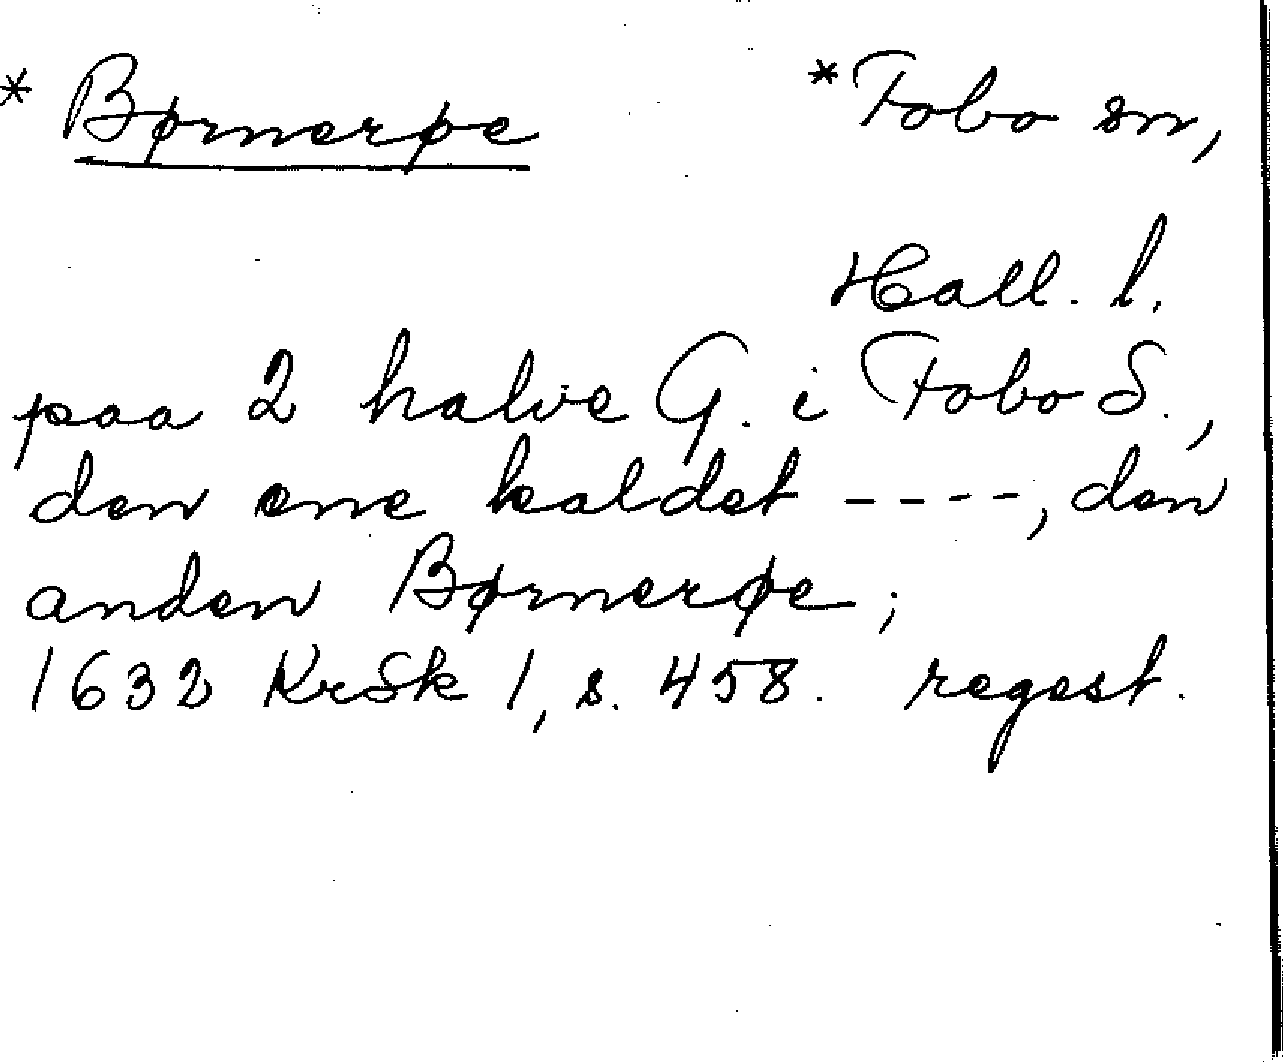 * Børnerøe * Fobo sn,
Hall. l.
paa 2 halve G. i Fobo S.,
den ene kaldet ----, den
anden Børnerøe;
1632 KrSk 1, s. 458. regest.